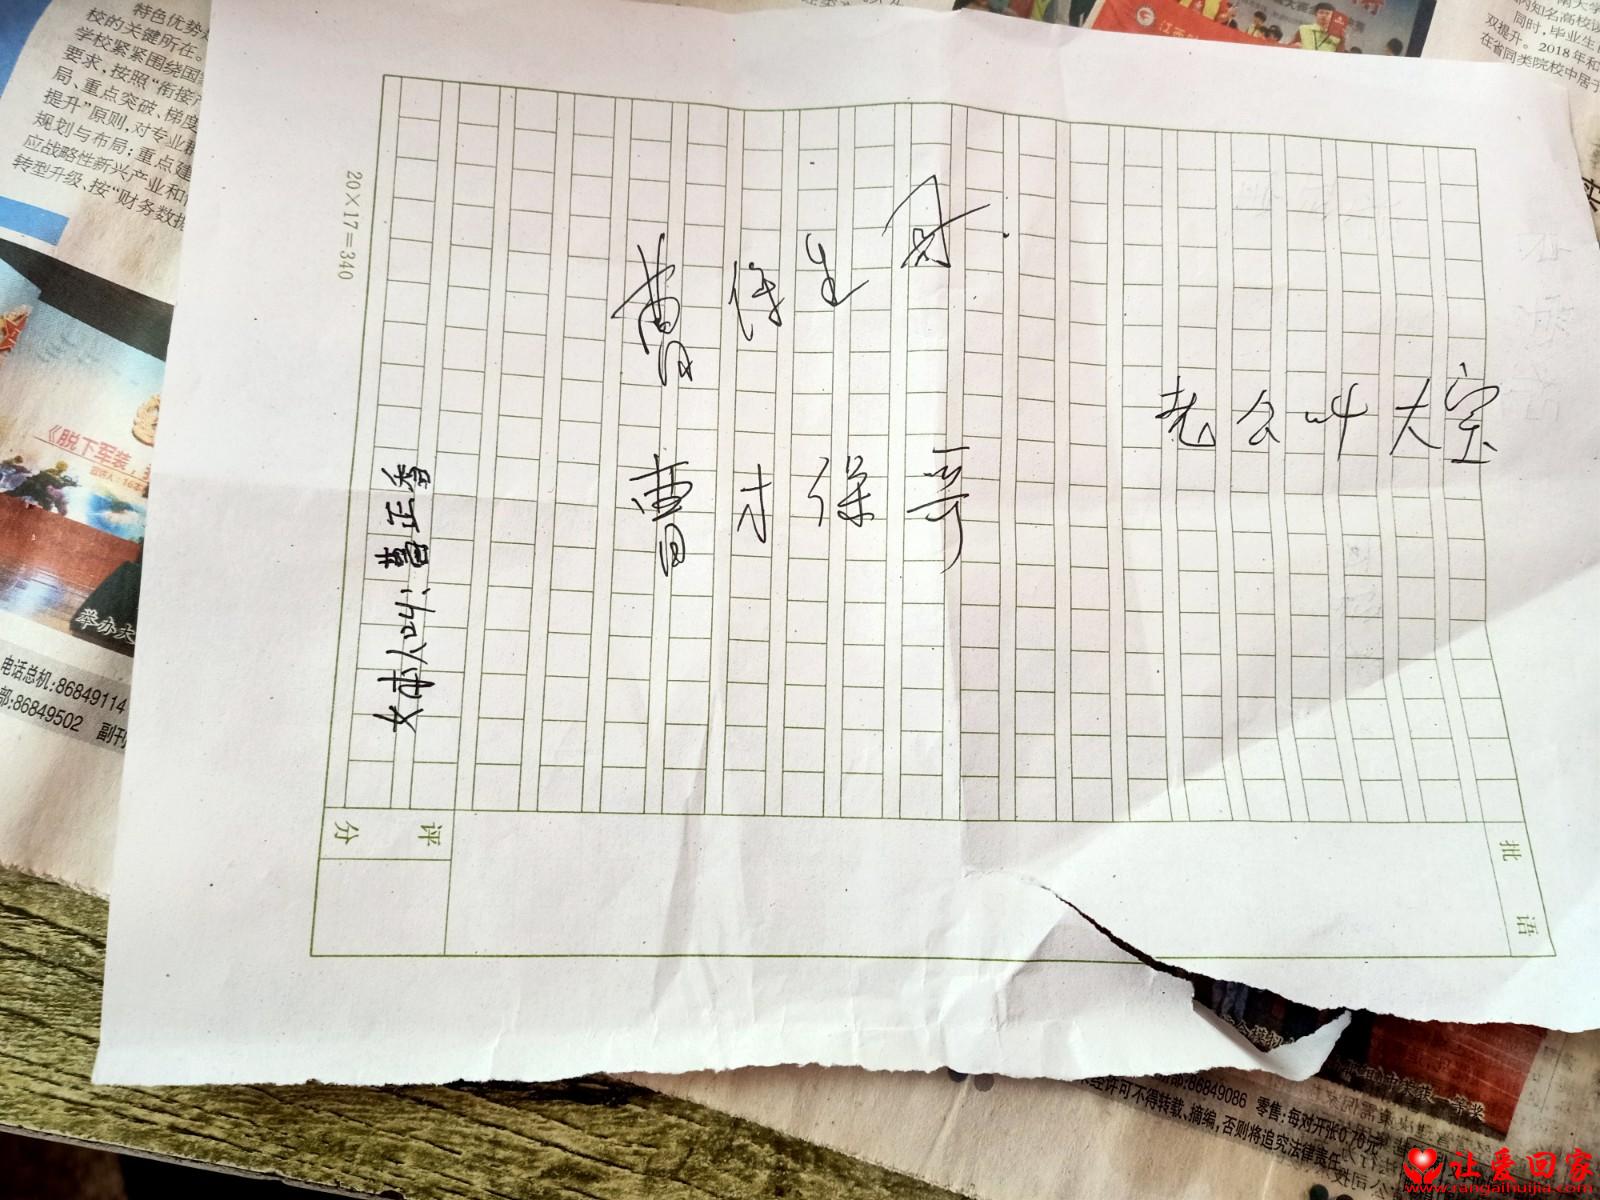 特色优势
校的关键所在。
学校紧紧围绕国
要求,按照“衔接产
局、重点突破、梯度
提升”原则,对专业群
规划与布局;重点建
应战略性新兴产业和
转型升级、按“财务数据
双提升。2018年和
同时,毕业生
在省同类院校中居于
20×17=340
曹保生 父
老公叫大宝
曹才保 哥
女本人叫:曹正香
《脱下军装,
举办大
电话总机:86849114
部:86849502 副刊
评分
批语
部:86849086 零售:每对开张0.70元
未经许可不得转载、摘编,否则将追究法律责任
让爱回家
www.rangaihuijia.com